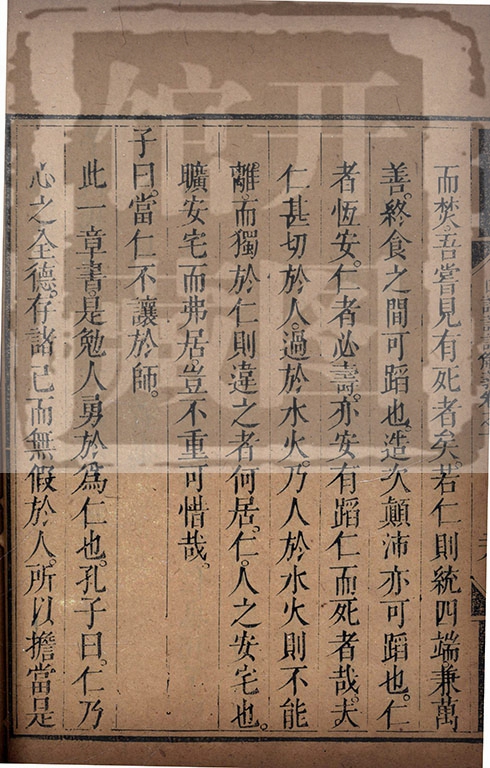 而焚。吾嘗見有死者矣。若仁則統四端兼萬
善。終食之間可蹈也。造次顛沛亦可蹈也。仁
者恆安。仁者必壽。亦安有蹈仁而死者哉。夫
仁甚切於人。過於水火。乃人於水火則不能
離。而獨於仁則違之者何居。仁。人之安宅也。
曠安宅而弗居。豈不重可惜哉。
子曰。當仁不讓於師。
此一章書。是勉人勇於為仁也。孔子曰。仁乃
心之全德。存諸己而無假於人。所以擔當是